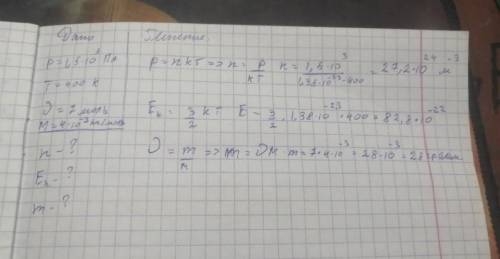 Дано
p=1,5·10⁵ Па
T=400 К
ϑ=7 моль
M=4·10⁻³ кг/моль
n-?
Eₖ-?
m-?
Решение.
p=nkT=>n= p/kT n= 1,5·10⁵/1,38·10⁻²³·400 =27,2·10²⁴ м⁻³
Eₖ= 3/2 kT E= 3/2 ·1,38·10⁻²³·400=82,8·10⁻²²
ϑ= m/M =>m=ϑM m=7·4·10⁻³=28·10⁻³=28 грамм